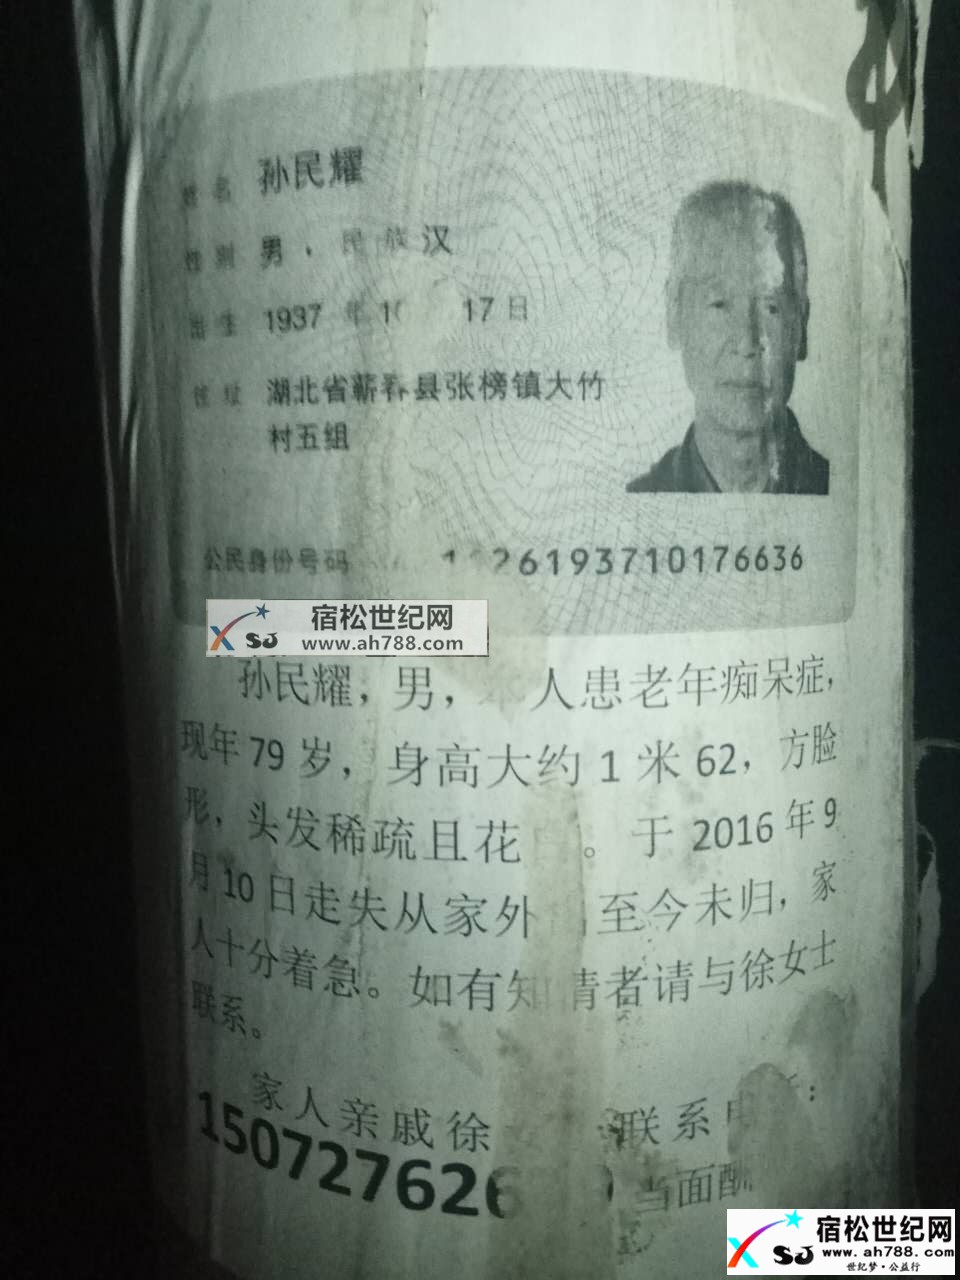 姓名 孙民耀
性别 男 民族 汉
出生 1937 年 10 17 日
住址 湖北省蕲春县张榜镇大竹
村五组
公民身份号码 26193710176636
宿松世纪网
XSJ www.ah788.com
孙民耀，男， 人患老年痴呆症，
现年 79 岁，身高大约 1 米 62，方脸
形，头发稀疏且花 。于 2016 年 9
月 10 日走失从家外 至今未归，家
人十分着急。如有知情者请与徐女士
联系。
家人亲戚徐 联系电 ：
150727626 当面酬
宿松世纪网
XSJ www.ah788.com
世纪梦·公益行